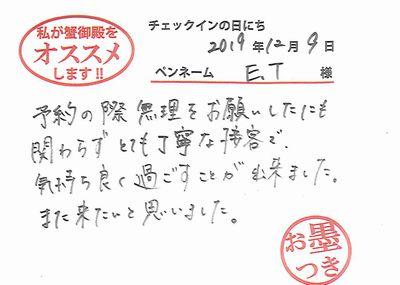 私が蟹御殿を
オススメ
します!!
チェックインの日にち
2019年12月9日
ペンネーム E.T 様
予約の際無理をお願いしたにも
関わらずとても丁寧な接客で、
気持ち良く過ごすことが出来ました。
また来たいと思いました。
お墨
つき